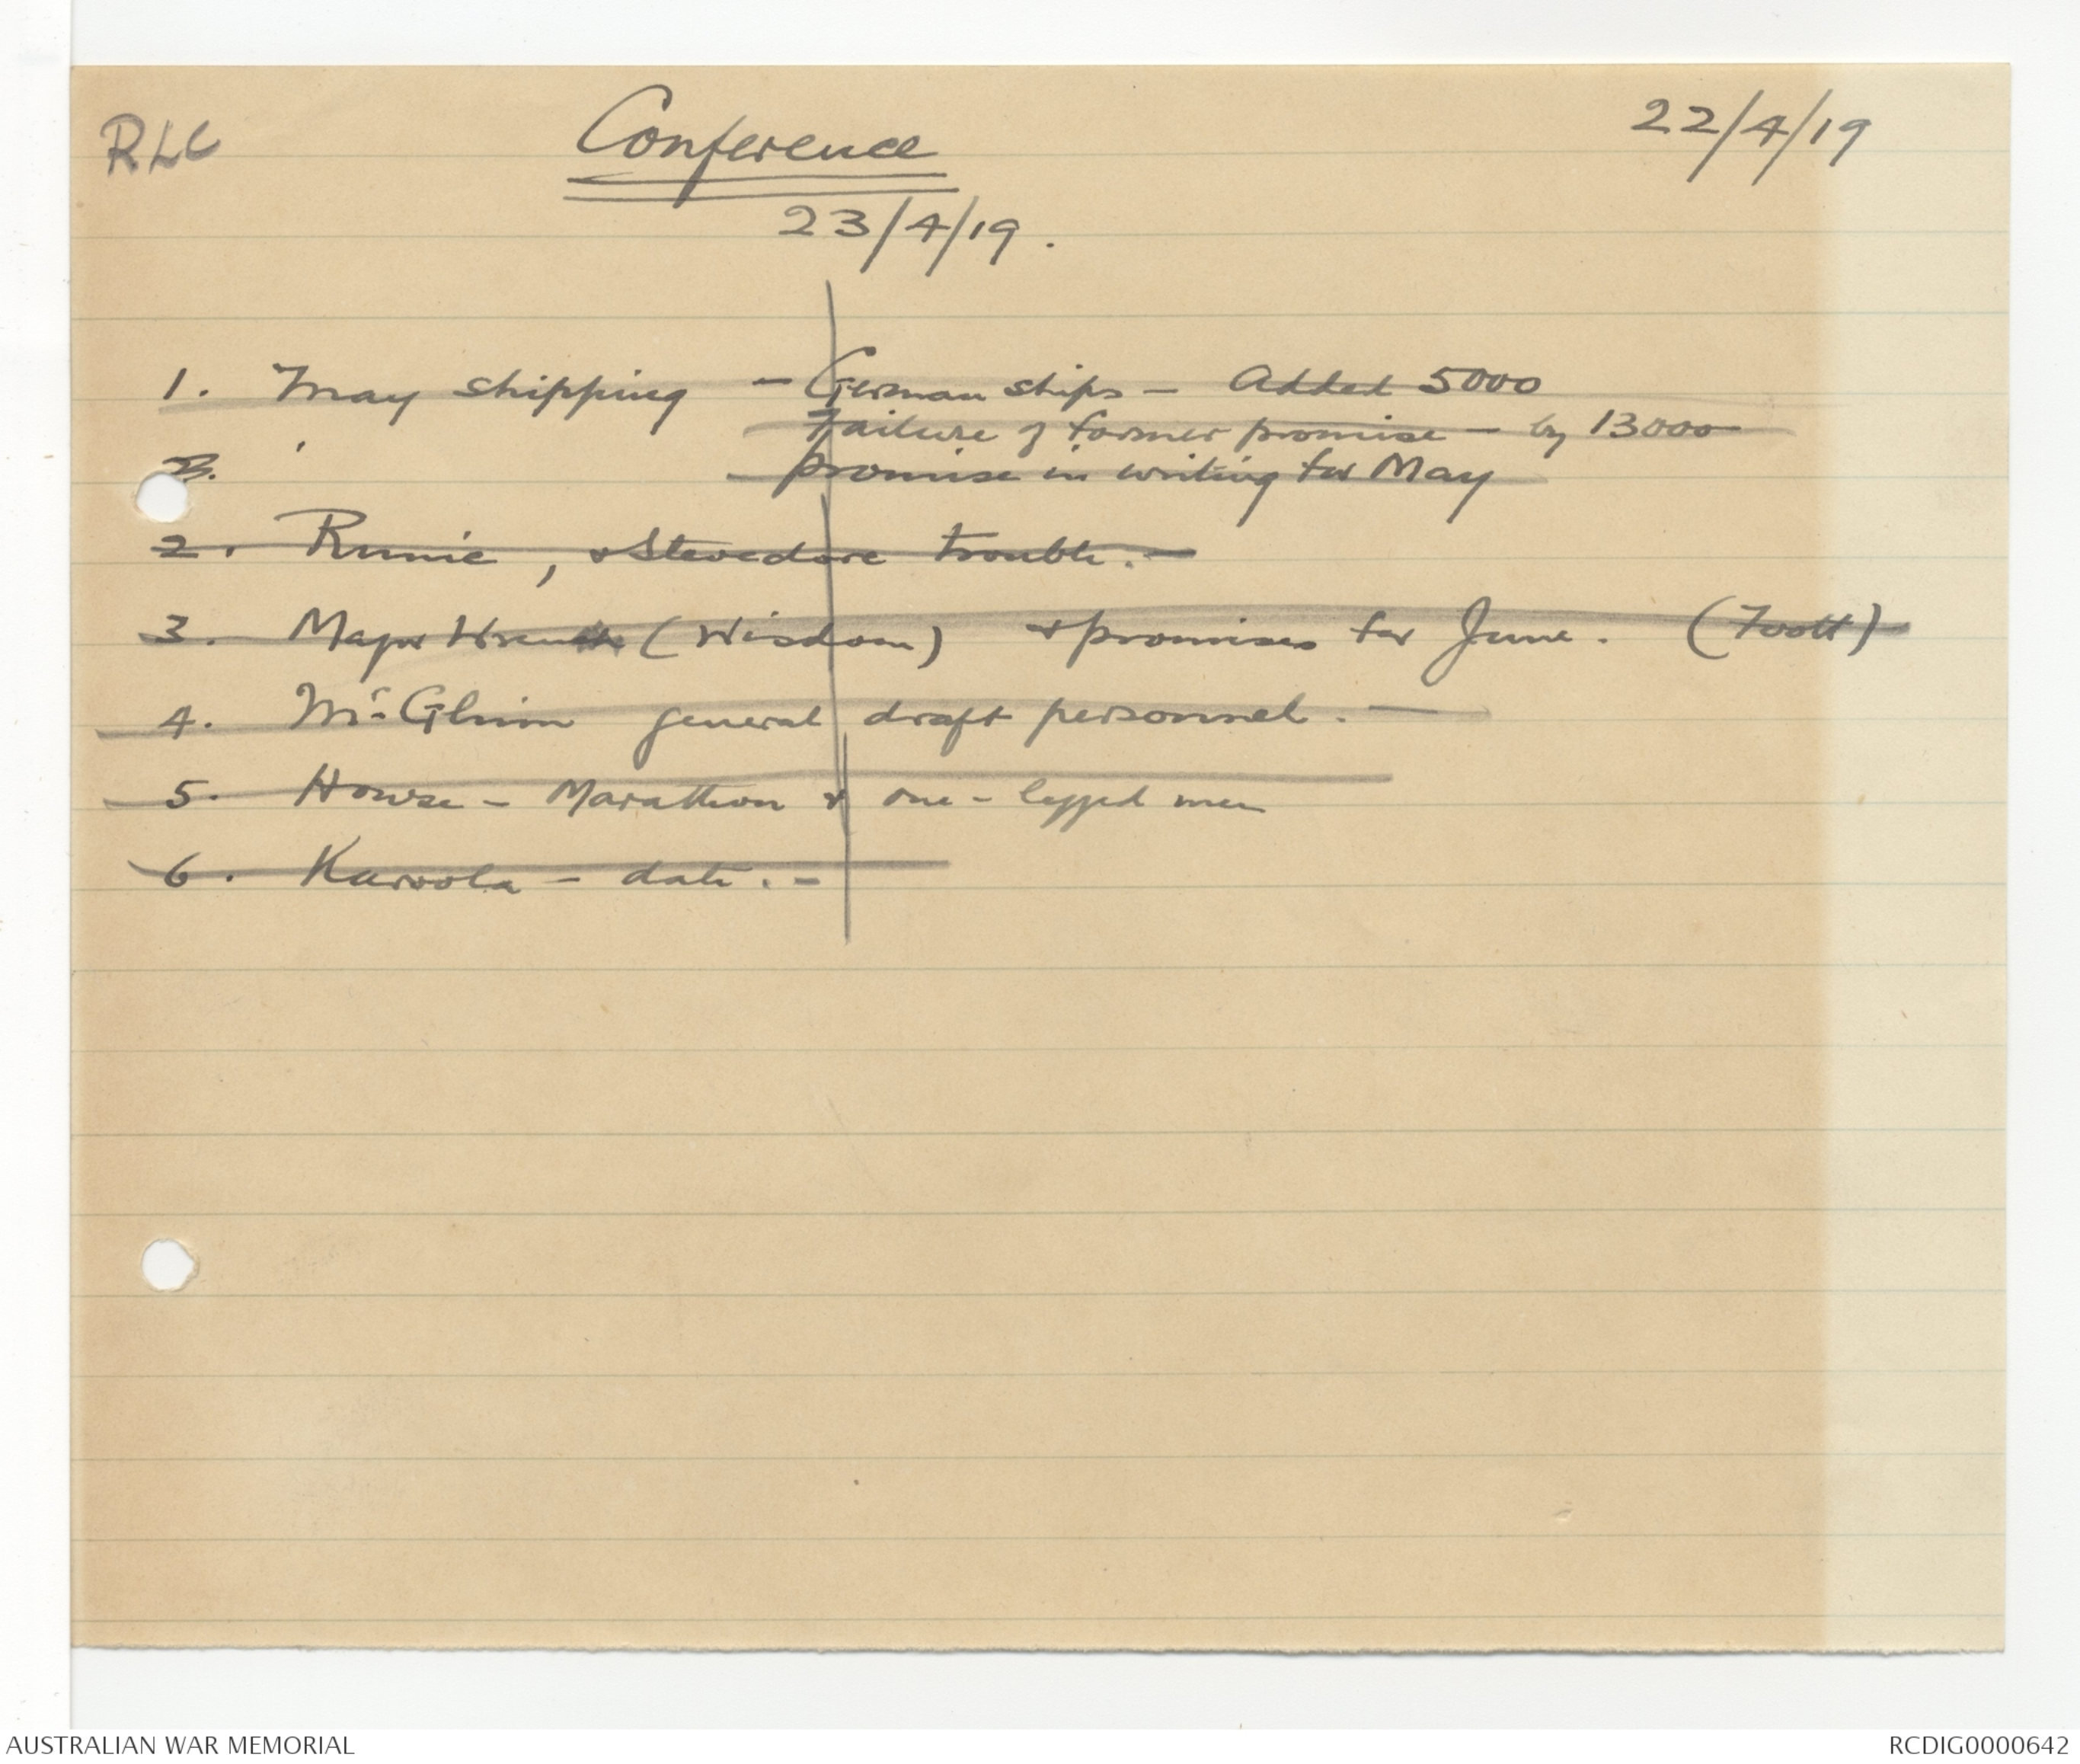 RLC
Conference
22/4/19
23/4/19.
1. May shipping - German ships - Added 5000
Failure of former promise - by 13000
promise in writing for May
2. Runic, & Stevedore trouble. -
3. Major (Wisdom) & promises for June. (Foott)
4. McGlinn general draft personnel. -
5. Howse - Marathon & one-legged men
6. Karoola - date. -
AUSTRALIAN WAR MEMORIAL
RCDIG0000642